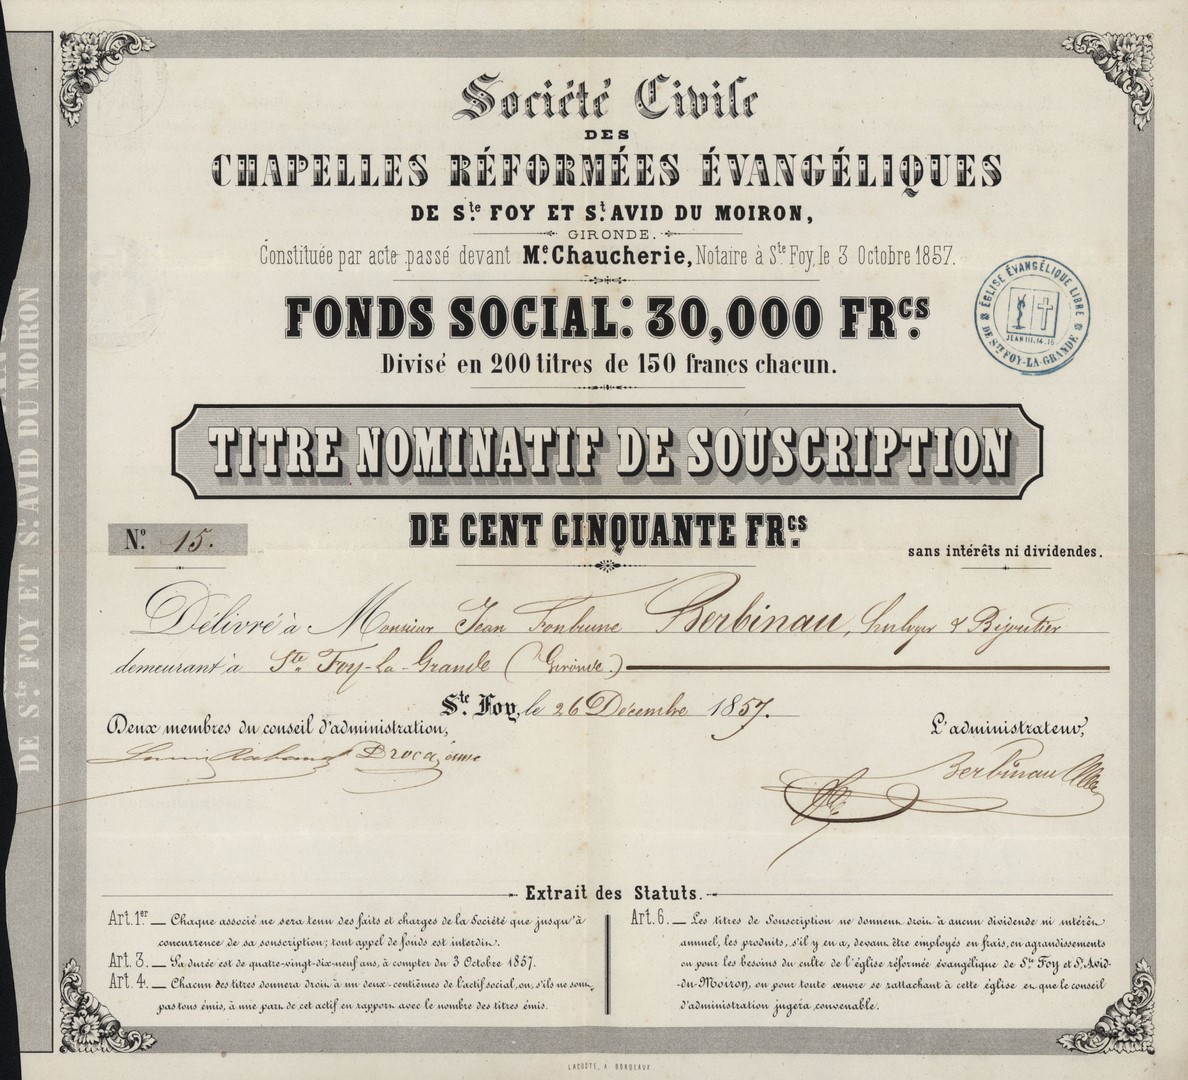 Société Civile
DES
CHAPELLES RÉFORMÉES ÉVANGÉLIQUES
DE Ste FOY ET St AVID DU MOIRON,
GIRONDE.
Constituée par acte passé devant Me Chaucherie, Notaire à Ste Foy, le 3 Octobre 1857.
FONDS SOCIAL: 30,000 FRcs.
Divisé en 200 titres de 150 francs chacun.
ÉGLISE ÉVANGÉLIQUE LIBRE
JEAN III. 14. 15
DE Ste FOY-LA-GRANDE
TITRE NOMINATIF DE SOUSCRIPTION
DE CENT CINQUANTE FRcs.
No. 15.
sans intérêts ni dividendes.
Délivré à Monsieur Jean Fonbrune Berbinau, horloger & Bijoutier
demeurant à Ste Foy-La-Grande (Gironde.)
Ste Foy, le 26 Décembre 1857.
Deux membres du conseil d'administration,
L'administrateur,
Berbinau
Extrait des Statuts.
Art. 1er — Chaque associé ne sera tenu des faits et charges de la Société que jusqu'à
concurrence de sa souscription; tout appel de fonds est interdit.
Art. 3. — Sa durée est de quatre-vingt-dix-neuf ans, à compter du 3 Octobre 1857.
Art. 4. — Chacun des titres donnera droit à un deux-centièmes de l'actif social, ou, s'ils ne sont
pas tous émis, à une part de cet actif en rapport avec le nombre des titres émis.
Art. 6. — Les titres de Souscription ne donnent droit à aucun dividende ni intérêt
annuel, les produits, s'il y en a, devant être employés en frais, en agrandissements
ou pour les besoins du culte de l'église réformée évangélique de Ste Foy et St Avid-
du-Moiron, ou pour toute œuvre se rattachant à cette église et que le conseil
d'administration jugera convenable.
LACOSTE, A BORDEAUX
DE Ste FOY ET St AVID DU MOIRON